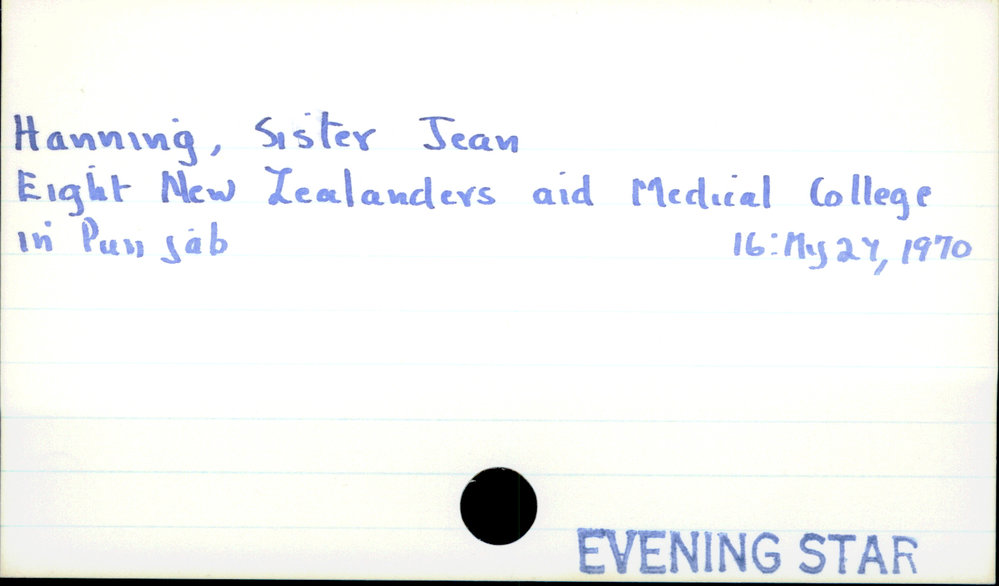 Hanning, Sister Jean
Eight New Zealanders aid Medical College
in Punjab 16: My 27, 1970
EVENING STAR